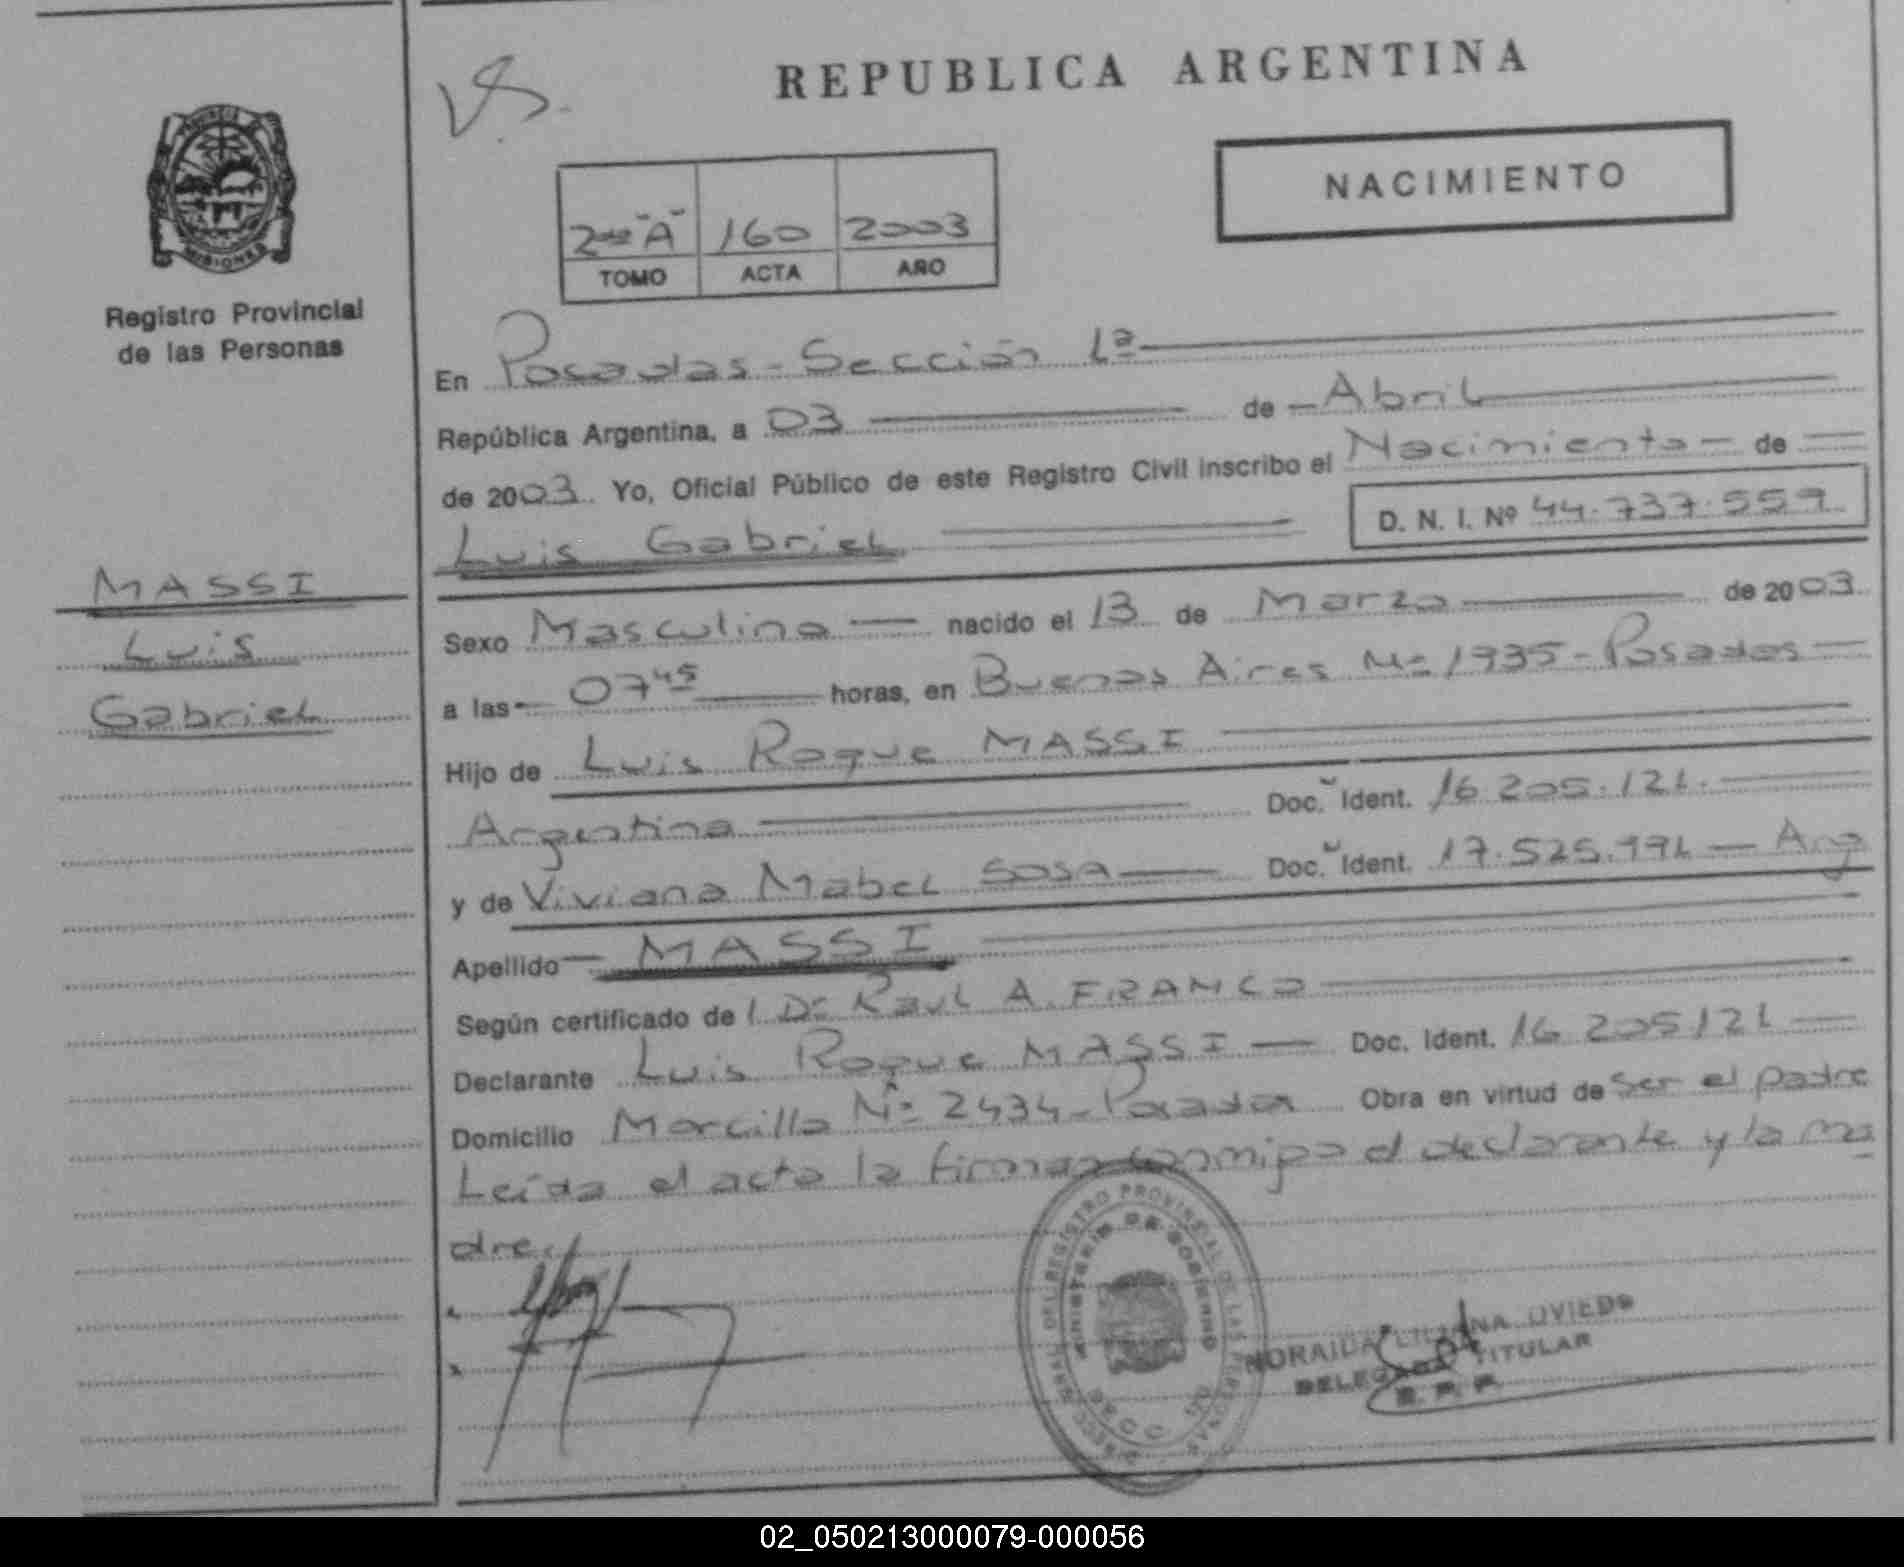 REPUBLICA ARGENTINA
NACIMIENTO
"A" 160 2003
TOMO ACTA AÑO
PROVINCIA DE
MISIONES
Registro Provincial
de las Personas
MASSI
Luis
Gabriel
En Posadas - Sección 1ª
República Argentina, a 03 de Abril
de 2003. Yo, Oficial Público de este Registro Civil inscribo el Nacimiento de
Luis Gabriel D. N. I. Nº 44.737.559
Sexo Masculino nacido el 13 de Marzo de 2003
a las 07 45 horas, en Buenos Aires Nº 1935 - Posadas
Hijo de Luis Roque MASSI
Argentina Doc. Ident. 16.205.121.
y de Viviana Mabel SOSA Doc. Ident. 17.525.991 Arg
Apellido MASSI
Según certificado de l Dr Raul A. FRANCO
Declarante Luis Roque MASSI Doc. Ident. 16 205121
Domicilio Morcillo Nº 2434 - Posadas Obra en virtud de ser el padre
Leida el acta la firman conmigo el declarante y la ma
dre.
REGISTRO PROVINCIAL DE LAS PERSONAS
MINISTERIO DE GOBIERNO
NORAIDA LILIANA OVIEDO
DELEGADA TITULAR
R. P. P.
02_050213000079-000056